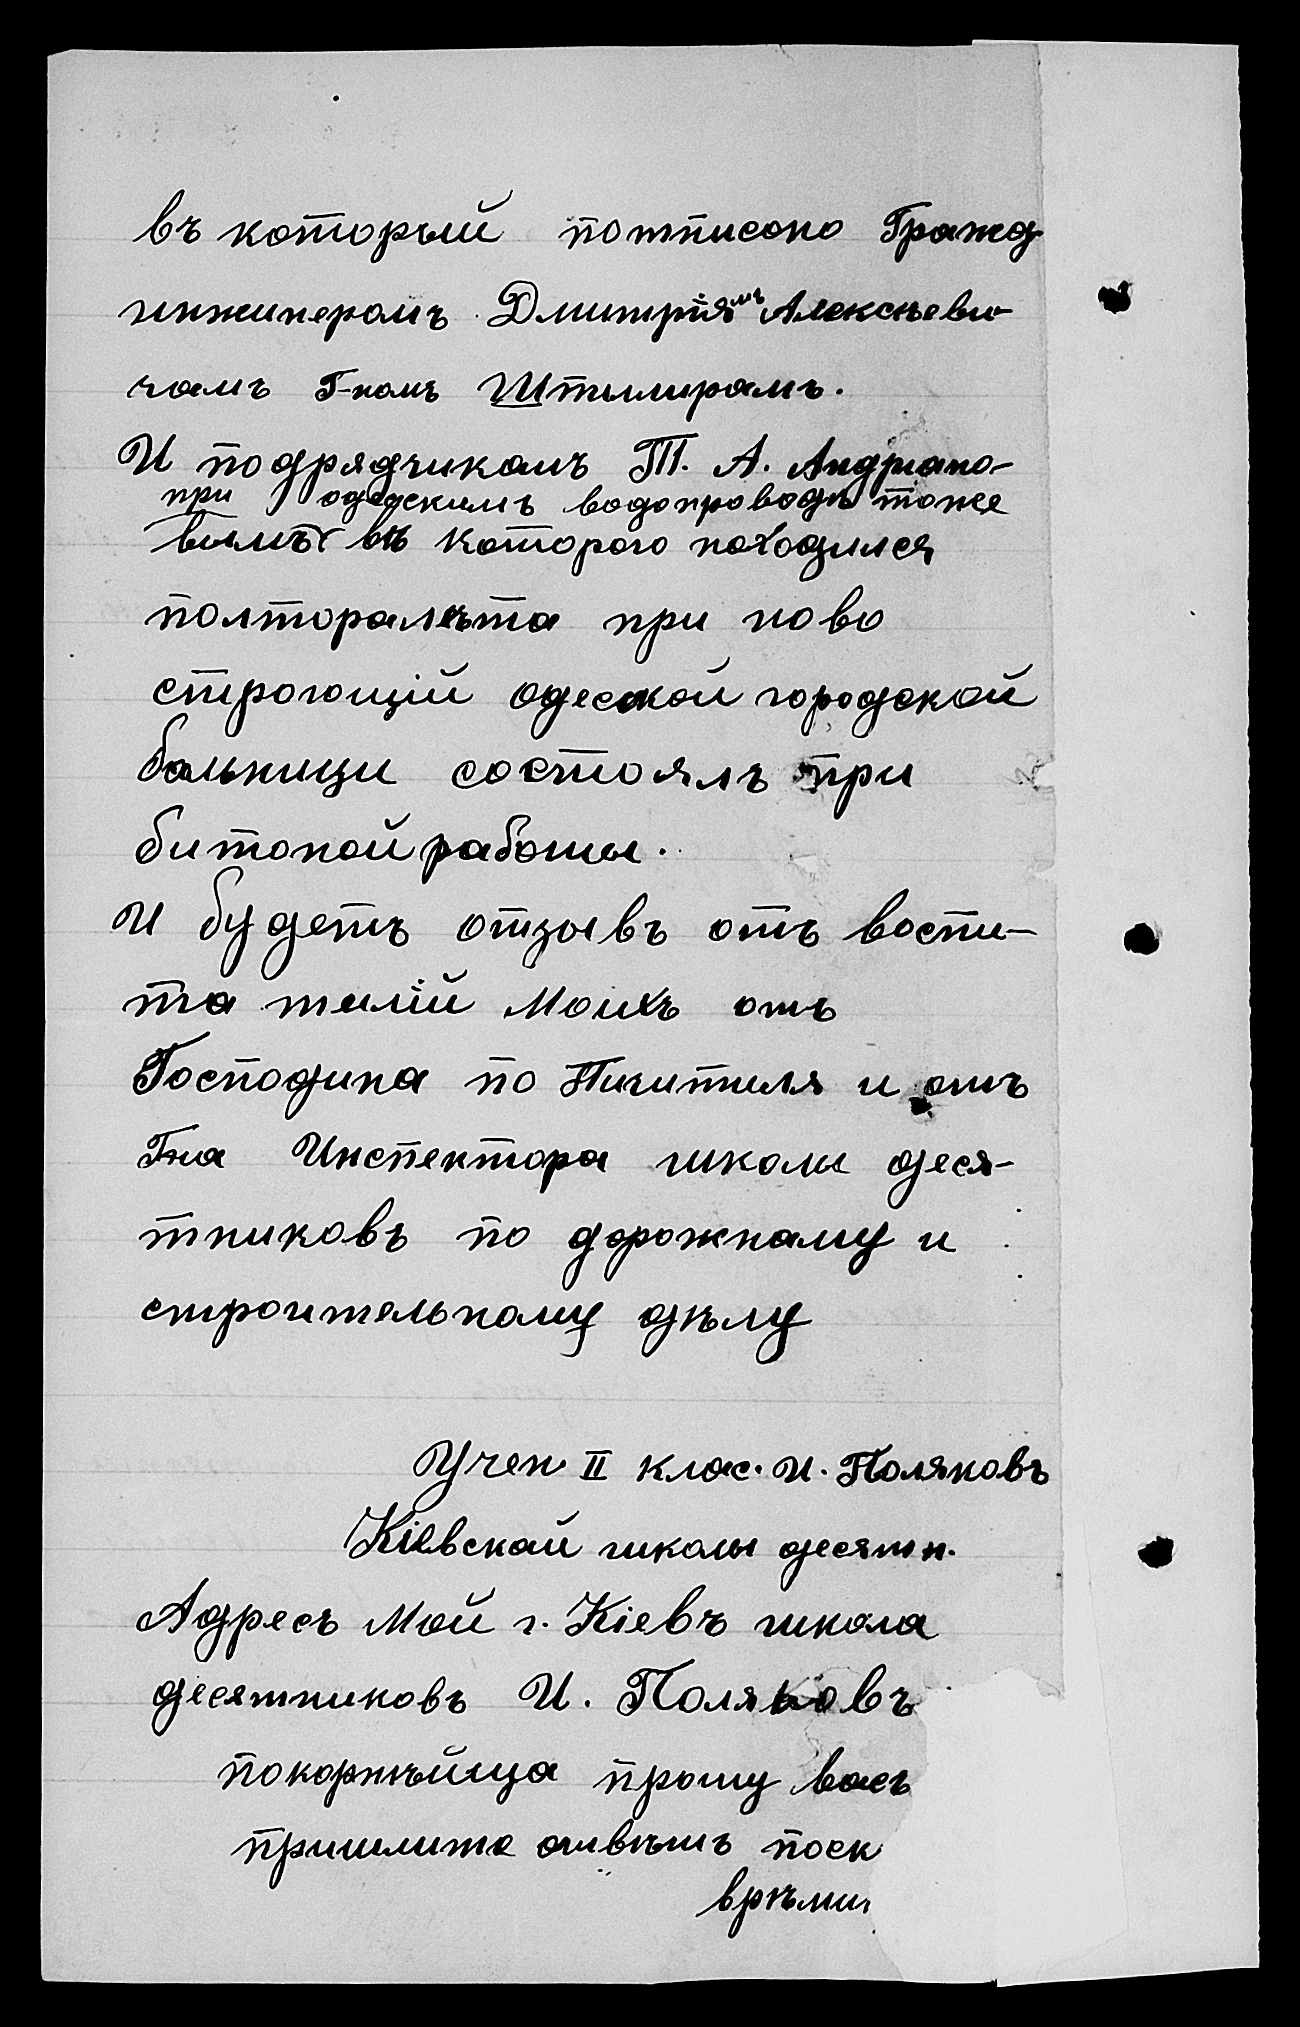 въ который потписоно Гражд
инжинеромъ Дмитріямъ Алексѣеви-
чамъ Г-номъ Штилирамъ.
И подрядчикамъ Т. А. Андриано-
при одескимъ водопроводѣ тоже
вимъ въ которого находился
полторалѣта при ново
строющій одеской городской
больници состоялъ при
битоной работы.
И будетъ отзывъ отъ воспи-
та телій Моихъ отъ
Господина по Пичитиля и отъ
Гна Инспектора школы деся-
тниковъ по дорожнаму и
строительному дѣлу
Учен II клас. И. Поляковъ
Кіевскай школы десятн.
Адресъ Мой г. Кіевъ школа
десятниковъ И. Поляковъ
покорнѣйща прошу васъ
пришлите отвѣтъ поск
врѣми